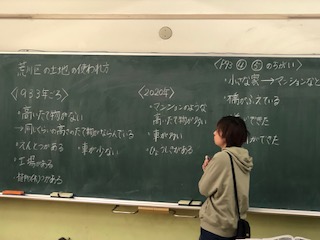 荒川区の土地の使われ方
〈1933年ごろ〉
・高いたて物がない
→同じくらいの高さのたて物がならんでいる
・えんとつがある
・車が少ない
・工場がある
〈2020年〉
・マンションのような
高いたて物が多い
・車が多い
・ひょうしきがある
〈P93 ④ ⑤のちがい〉
・小さな家→マンションなど
・橋がふえている
ができた
ができた